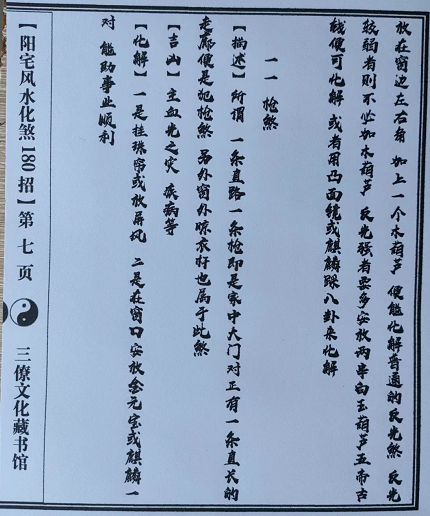 放在窗边左右角 加上一个木葫芦 便能化解普通的反光煞 反光
较弱者则不必加木葫芦 反光强者要多安放两串白玉葫芦五帝古
钱便可化解 或者用凸面镜或麒麟踩八卦来化解
一一 枪煞
【描述】所谓 一条直路一条枪即是家中大门对正有一条直长的
走廊便是犯枪煞 另外窗外晾衣竹也属于此煞
【吉凶】主血光之灾 疾病等
【化解】一是挂珠帘或放屏风 二是在窗口安放金元宝或麒麟一
对 能助事业顺利
【阳宅风水化煞180招】第七页
三僚文化藏书馆